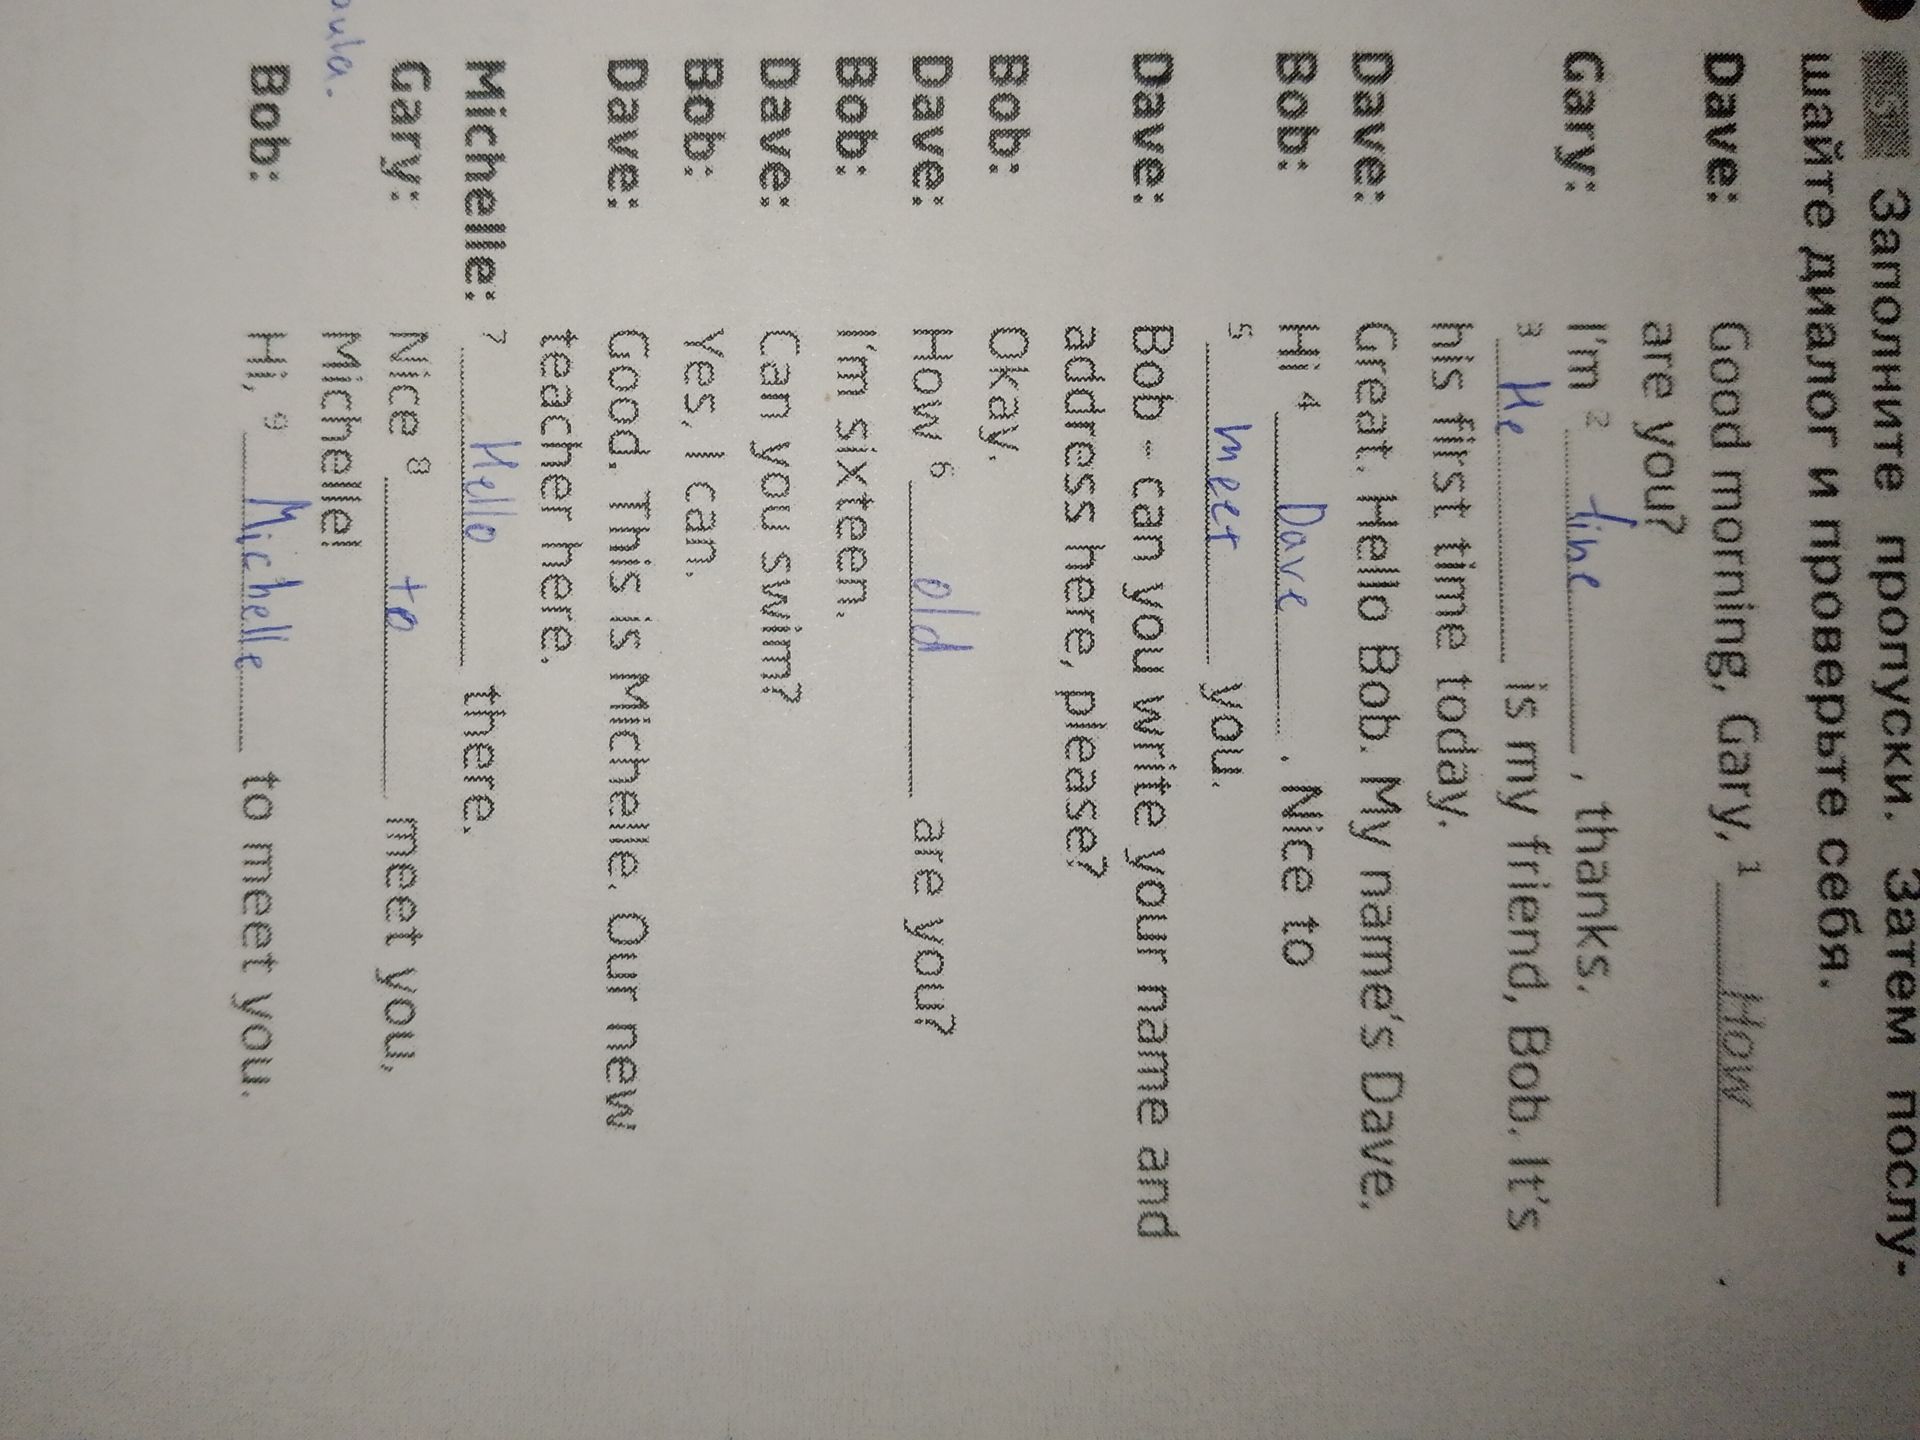 Заполните пропуски. Затем послу-
шайте диалог и проверьте себя.
Dave: Good morning, Gary, 1 How
are you?
Gary: I'm 2 fine, thanks.
3 He is my friend, Bob. It's
his first time today.
Dave: Great. Hello Bob. My name's Dave.
Bob: Hi 4 Dave. Nice to
5 meet you.
Dave: Bob - can you write your name and
address here, please?
Bob: Okay.
Dave: How 6 old are you?
Bob: I'm sixteen.
Dave: Can you swim?
Bob: Yes, I can.
Dave: Good. This is Michelle. Our new
teacher here.
Michelle: 7 Hello there.
Gary: Nice 8 to meet you,
Michelle!
Bob: Hi, 9 Michelle to meet you.